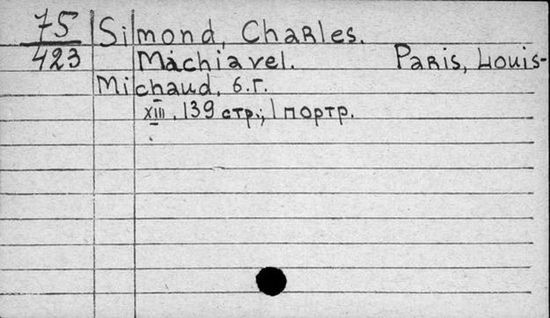 75 Silmond, Charles.
423 Machiavel. Paris, Louis-
Michaud, б.г.
XIII, 139 стр.; 1 портр.